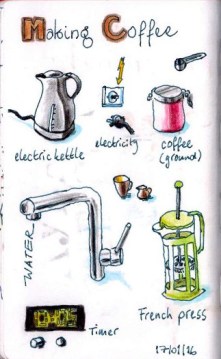 Making Coffee
electric kettle
electricity
coffee
(ground)
WATER
French press
10:05
Timer
17/01/16